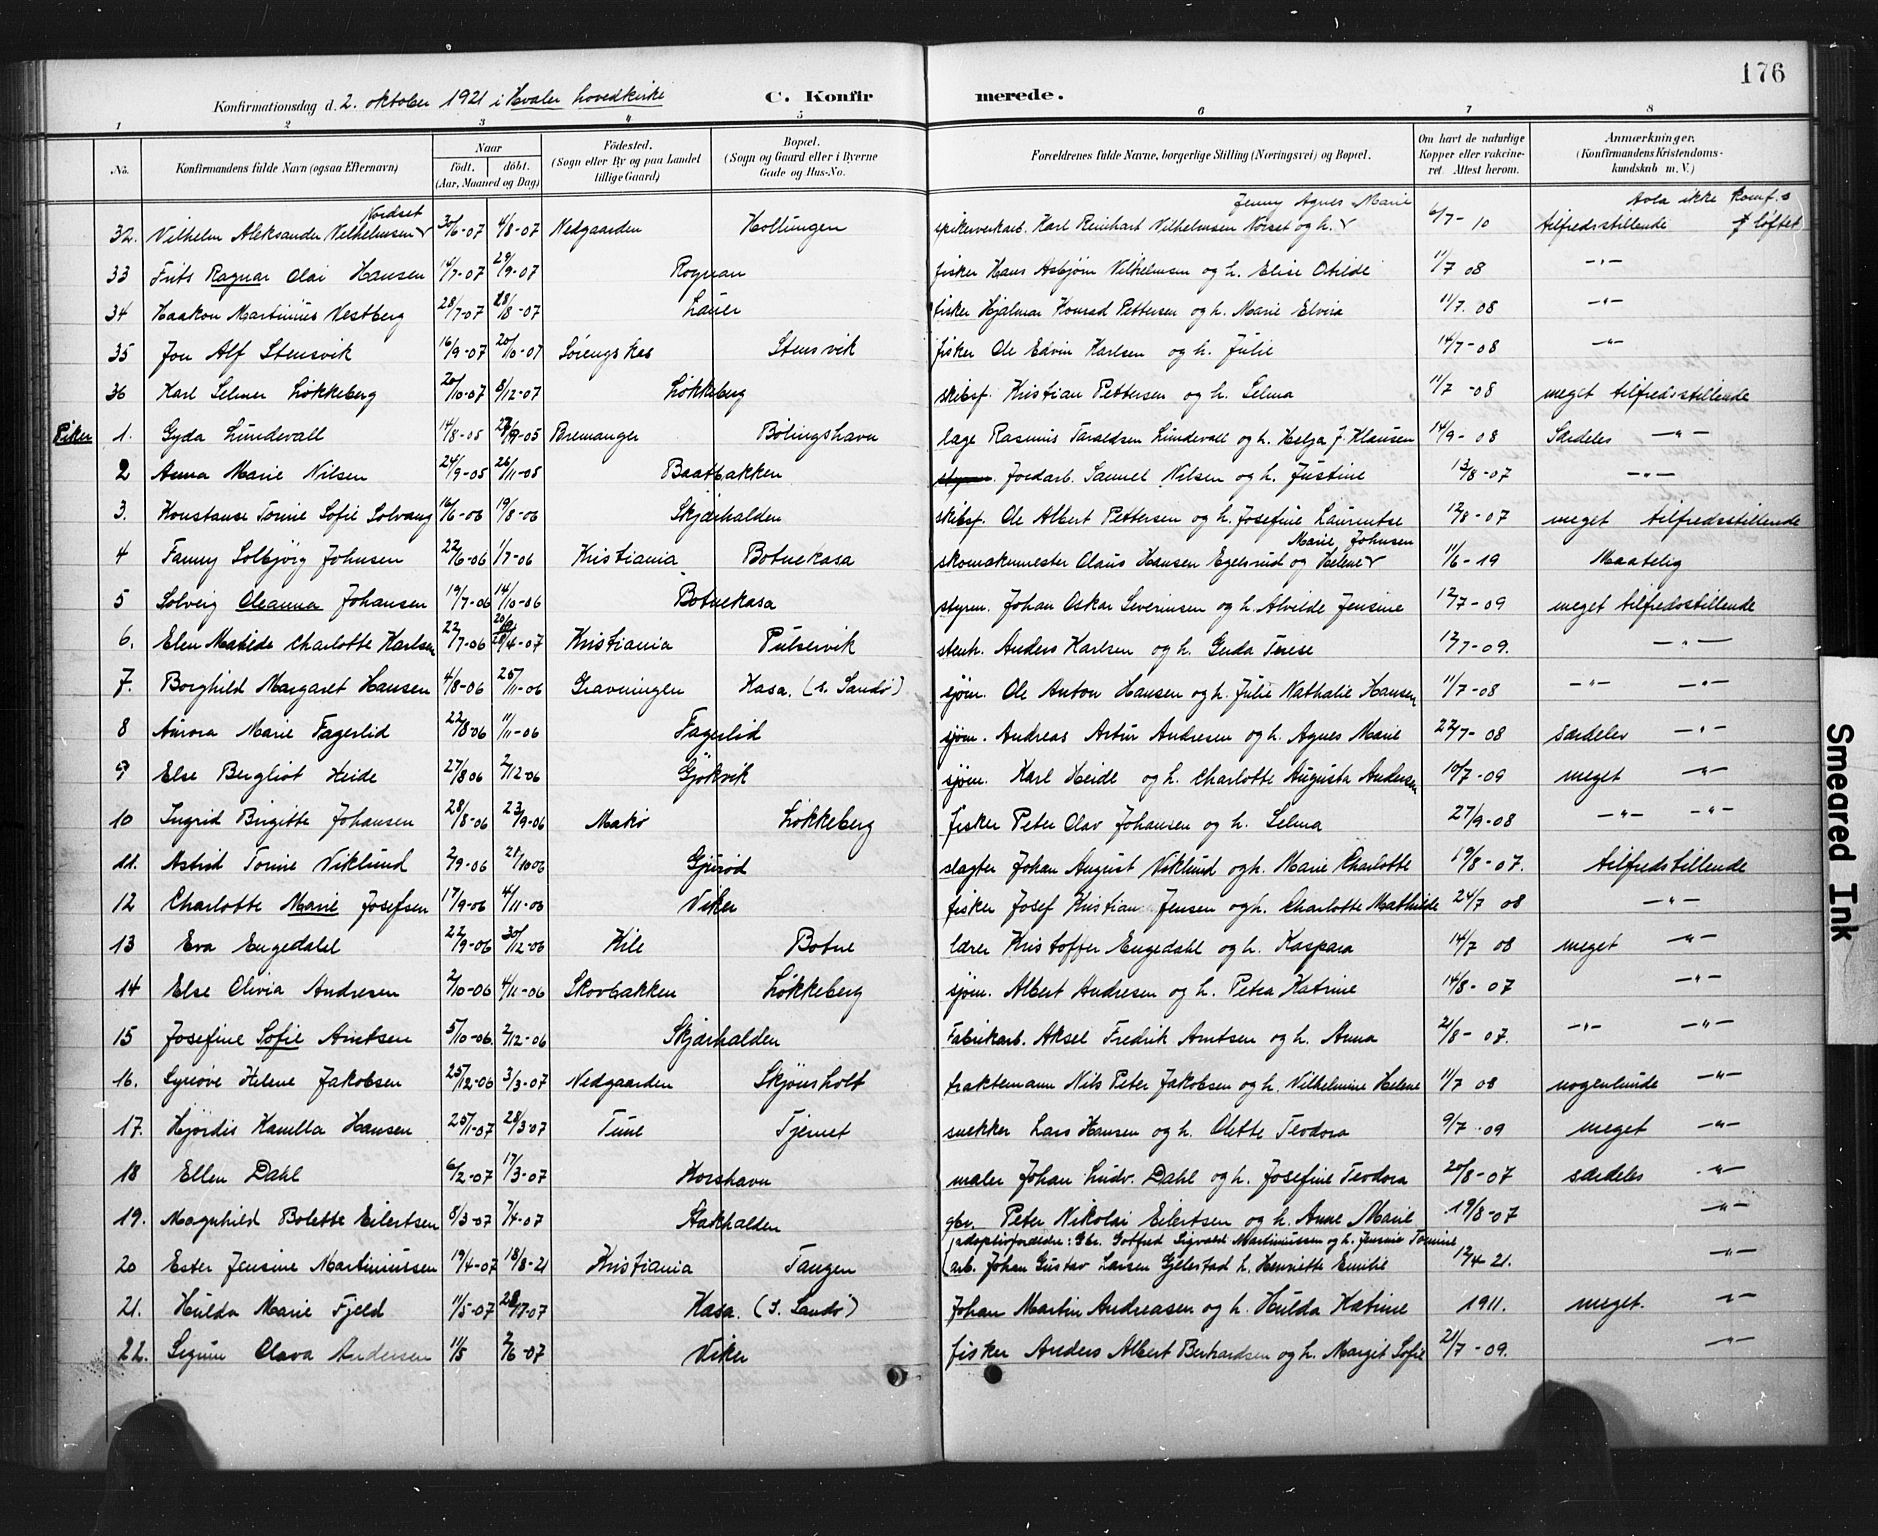 176
Konfirmationsdag d. 2. oktober 1921 i Hvaler hovedkirke C. Konfirmerede.
1 2 3 4 5 6 7 8
No. Konfirmandens fulde Navn (ogsaa Efternavn) Naar født. døbt. (Aar, Maaned og Dag) Fødested. (Sogn eller By og paa Landet tillige Gaard) Bopæl. (Sogn og Gaard eller i Byerne Gade og Hus-No. Forældrenes fulde Navne, borgerlige Stilling (Næringsvei) og Bopæl. Om havt de naturlige Kopper eller vakcineret. Attest herom. Anmærkninger. (Konfirmandens Kristendomskundskab m. V.)
Nordset Jenny Agnes Marie Avla ikke konf.s
32. Vilhelm Aleksander Vilhelmsen 30/6-07 4/8-07 Nedgaarden Hollungen spikerverkarb. Karl Reinhart Vilhelmsen Norset og h. 6/7-10 tilfredsstillende løftet
33 Frits Ragnar Olai Hansen 14/7-07 29/9-07 Rognan fisker Hans Asbjørn Vilhelmsen og h. Elise Otilde 11/7 08 -"-
34 Haakon Martinius Vestberg 28/7-07 18/8-07 Lauer fisker Hjalmar Konrad Pettersen og h. Marie Elvira 11/7. 08 -"-
35 Jon Alf Stensvik 16/9-07 20/10-07 Stensvik fisker Ole Edvin Karlsen og h. Julie 14/7-08 -"-
36 Karl Selmer Løkkeberg 20/10-07 8/12-07 Løkkeberg skibsf. Kristian Pettersen og h. Selma 11/7 -08 meget tilfredsstillende
Piker 1. Gyda Lundevall 14/8-05 Bremanger Bølingshavn læge Rasmus Taraldsen Lundevall og h. Helga J. Klausen 14/9-08 Særdeles -"-
2 Anna Marie Nilsen 24/9-05 26/11-05 Baatbakken Jordarb. Samuel Nilsen og h. Justine 13/8-07 -"-
3. Konstanse Tomine Sofie Solvang 16/6-06 19/8-06 Skjærhalden skibsf. Ole Albert Pettersen og h. Josefine Laurentse 12/8-07 meget tilfredsstillende
Marie Johnsen
4 Fanny Solbjørg Johnsen 22/6-06 1/7-06 Kristiania Botnekasa skomakermester Claus Hansen Egelsrud og Helene 11/6-19 Maatelig
5 Solveig Oleanna Johansen 19/7-06 14/10-06 Botnekasa styrm. Johan Oskar Severinsen og h. Alvilde Jensine 12/7-09 meget tilfredsstillende
6. Elen Matilde Charlotte Karlsen 22/7-06 28/4-07 Kristiania Pulservik stenh. Anders Karlsen og h. Guda Terese 12/7-09. -"-
7. Borghild Margaret Hansen 4/8-06 25/11-06 Gravningen Kasa. (s. Sandø) sjøm. Ole Anton Hansen og h. Julie Nathalie Hansen 11/7-08 -"- -"-
8 Aurora Marie Fagerlid 22/8-06 11/11-06 Fagerlid sjøm. Andreas Artur Andresen og h. Agnes Marie 22/7-08 særdeles -"-
9 Else Bergliot Heide 27/8 06 2/12-06 Gjøkvik sjøm. Karl Heide og h. Charlotte Augusta Andersen 10/7-09 meget -"-
10 Ingrid Birgitte Johansen 28/8-06 23/9-06 Makø Løkkeberg fisker Peter Olav Johansen og h. Selma 27/9-08 -"- -"-
11. Astrid Tomine Viklund 2/9-06 21/10 06 Gjurød slagter Johan August Viklund og h. Marie Charlotte 19/8-07. tilfredsstillende
12 Charlotte Marie Josefsen 17/9-06 4/11-06 Viker fisker Josef Kristian Jensen og h. Charlotte Mathilde 24/7 08 -"-
13 Eva Engedahl 22/9-06 30/12-06 Kile Botne lærer Kristoffer Engedahl og h. Kaspara 14/7 08 meget -"-
14 Else Olivia Andresen 2/10-06 4/11-06 Skovbakken Løkkeberg sjøm. Albert Andresen og h. Petra Katrine 14/8-07 -"-
15 Josefine Sofie Arntsen 5/10-06. 2/12-06 Skjærhalden Fabrikarb. Aksel Fredrik Arntsen og h. Anna 21/8-07. -"- -"-
16. Synøve Helene Jakobsen 25/12-06 3/3-07 Nedgaarden Skjønsholt fraktemann Nils Peter Jakobsen og h. Vilhelmine Helene 11/7 08 nogenlunde -"-
17. Hjørdis Kamilla Hansen 25/1-07 28/3-07 Tune Tjernet snekker Lars Hansen og h. Olette Teodora 9/7-09 meget -"-
18 Ellen Dahl 6/2-07 17/3-07 Korshavn maler Johan Ludv. Dahl og h. Josefine Teodora 20/8-07 særdeles -"-
19. Magnhild Bolette Eilertsen 8/3-07 7/4-07 Stakhalden gbr. Peter Nikolai Eilertsen og h. Anne Marie 19/8-07 -"-
adoptivforældre: Gbr. Gotfred Sigvald Martiniussen og h. Jensine Tomine
20 Ester Jensine Martiniussen 19/4-07 18/8-21 Kristiania Tangen arb. Johan Gustav Larsen Gjelestad h. Henriette Emilie 12/4-21. -"-
21. Hulda Marie Fjeld 11/5-07 28/7-07 Kasa. (S. Sandø) Johan Martin Andreasen og h. Hulda Katrine 1911. meget. -"-
22. Signe Olava Andersen 11/5 2/6-07 Viker fisker Anders Albert Berhardsen og h. Margit Sofie 21/7-09. -"-
Smeared Ink